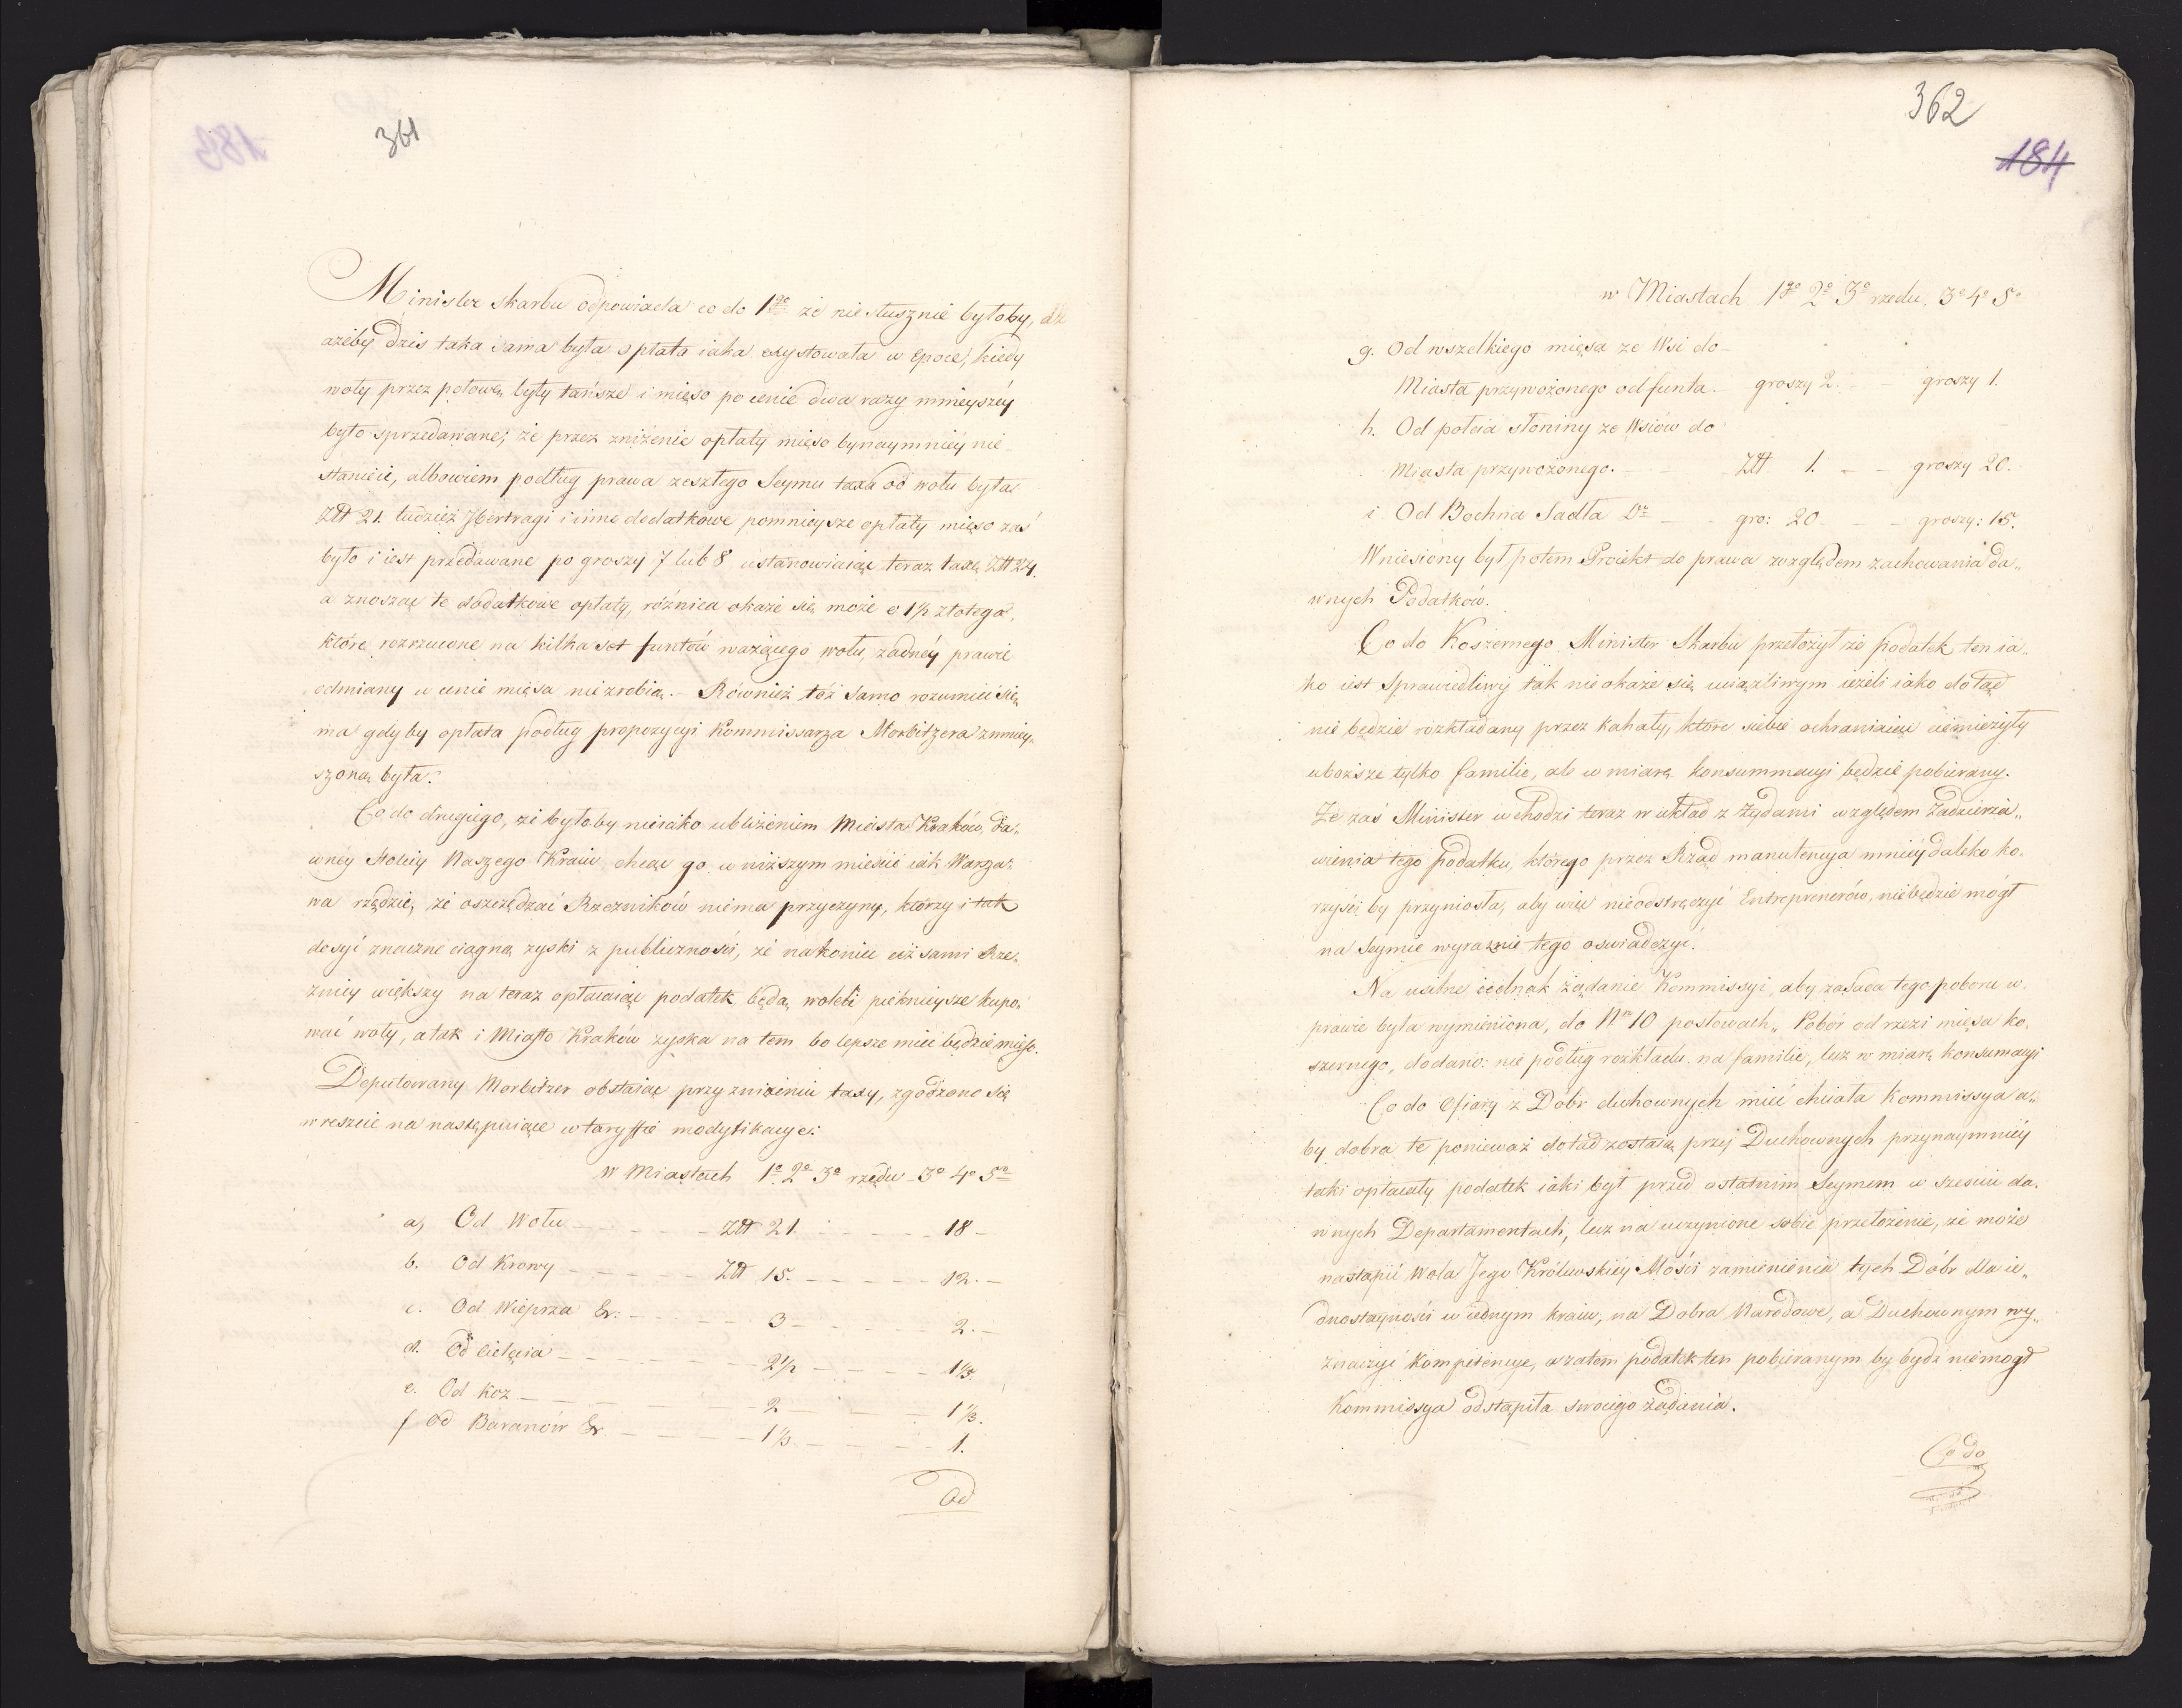 361
Minister Skarbu odpowiada co do 1go że niesłusznie byłoby,
ażeby dziś taka sama była opłata iaka exystowała w Epoce, kiedy
woły przez połowę były tańsze i mięso po cenie dwa razy mnieyszéy
było sprzedawane; że przez zniżenie opłaty mięso bynaymniéy nie
stanieie, albowiem podług prawa zeszłego Seymu taxa od wołu była
Złł 21. tudzież Ybertragi i inne dodatkowe pomnieysze opłaty mięso zaś
było i iest przedawane po groszy 7 lub 8 ustanowiaiąc teraz taxę Złł 24.
a znosząc te dodatkowe opłaty, różnica okaże się może o 1½ złotego,
które rozrzucone na kilka set funtów ważącego wołu, żadnéy prawie
odmiany w cenie mięsa nie zrobią. Również toż samo rozumieć się
ma gdyby opłata podług propozycyi Kommissarza Morbitzera zmniey-
szoną była.
Co do drugiego, że byłoby nieiako ubliżeniem Miasta Kraków da-
wnéy stolicy Naszego Kraiu chcąc go w niższym mieścić iak Warsza-
wa rzędzie, że oszczędzać Rzezników niema przyczyny, którzy i tak
dosyć znaczne ciągną zyski z publiczności, że nakoniec ciż sami Rze-
znicy większy na teraz opłacaiąc podatek będą woleli pięknieysze kupo-
wać woły, a tak i Miasto Kraków zyska na tem bo lepsze mieć będzie mięso.
Deputowany Morbitzer obstaiąc przy zniżeniu taxy, zgodzono się
wreszcie na następuiące w taryffie modyfikacye:
W Miastach 1o 2o 3o rzędu 3o 4o 5o
a, Od Wołu Złł 21. 18
b. Od Krowy Złł 15. 12.
c. Od Wieprza &r: 3 2.
d. Od cielęcia 2½ 1⅓.
e. Od Kóz 2 1⅓.
f Od Baranów &r 1⅓ 1.
Od
362
184
w Miastach 1go 2o 3o rzędu 3o 4o 5o
g. Od wszelkiego mięsa ze Wsi do
Miasta przywożonego od funta. groszy 2. groszy 1.
h. Od połcia słoniny ze Wsiów do
Miasta przywożonego. Złł 1. groszy 20.
i Od Bochna Sadła Do gro: 20 groszy: 15.
Wniesiony był potem Proiekt do prawa względem zachowania da„
wnych Podatków.
Co do Koszernego Minister Skarbu przełożył że podatek ten ia„
ko iest sprawiedliwy tak nie okaże się uciążliwym ieżeli iako dotąd
nie będzie rozkładany przez kahały, które siebie ochraniaiąc ciemiężyły
uboższe tylko familie, ale w miarę konsummacyi będzie pobierany.
Że zaś Minister wchodzi teraz w układ z Żydami względem Zadzierża„
wienia tego podatku, którego przez Rząd manutencya mniéy daleko ko-
rzyści by przyniosła, aby więc nieodstręczyć Entreprenerów, niebędzie mógł
na Seymie wyraznie tego oswiadczyć.
Na usilne iednak żądanie Kommissyi, aby zasada tego poboru w
prawie była wymieniona, do Nro 10 po słowach „ Pobór od rzezi mięsa ko-
szernego, dodano: nie podług rozkładu na familie, lecz w miarę konsumacyi
Co do Ofiary z Dóbr duchownych mieć chciała Kommissya a„
by dobra te ponieważ dotąd zostaią przy Duchownych przynaymniéy
taki opłacały podatek iaki był przed ostatnim Seymem w sześciu da-
wnych Departamentach, lecz na uczynione sobie przełożenie, że może
nastąpić Wola Jego Królewskiéy Mości zamienienia tych Dóbr dla ie„
dnostayności w iednym kraiu, na Dobra Narodowe, a Duchownym wy„
znaczyć Kompetencye, a zatem podatek ten pobieranym by bydź niemógł
Kommissya odstąpiła swoiego żądania.
Co do